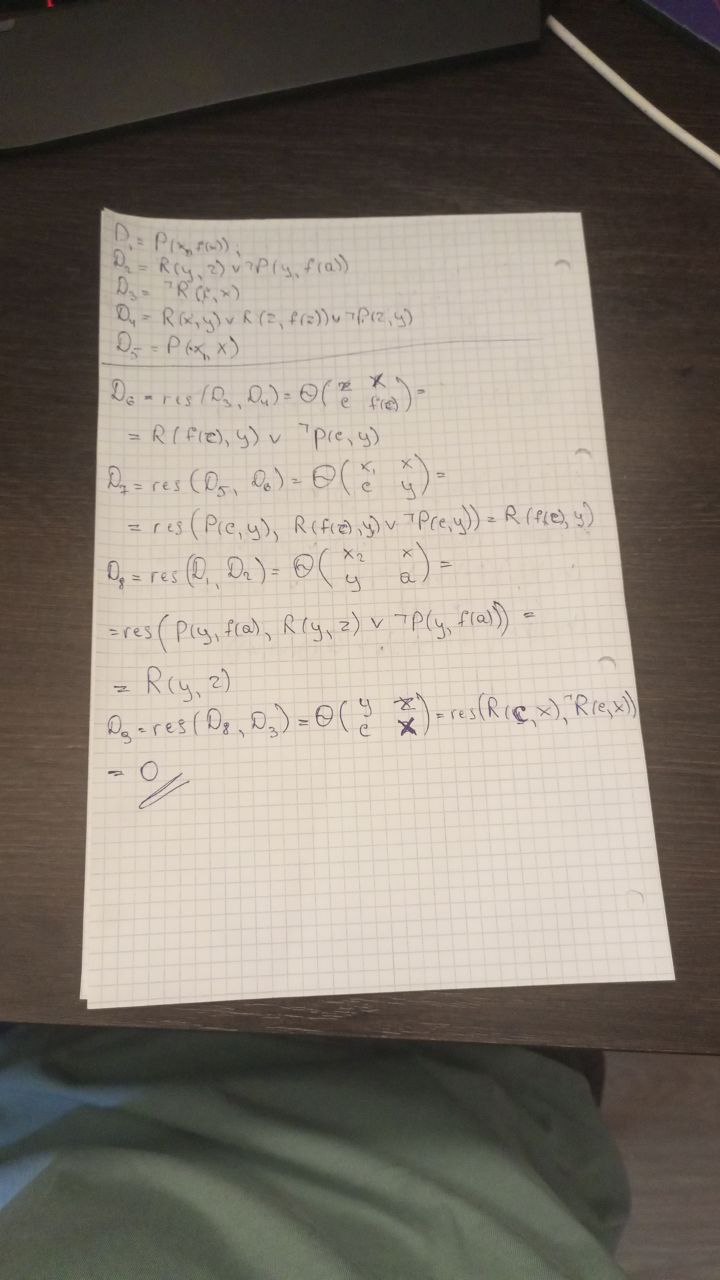 D₁ = P(x₁, f(x));
D₂ = R(y, z) ∨ ¬P(y, f(a))
D₃ = ¬R(c, x)
D₄ = R(x, y) ∨ R(z, f(z)) ∨ ¬P(z, y)
D₅ = P(x₁, x)
D₆ = res(D₃, D₄) = Θ(z x / c f(c)) =
= R(f(c), y) ∨ ¬P(c, y)
D₇ = res(D₅, D₆) = Θ(x₁ x / c y) =
= res(P(c, y), R(f(c), y) ∨ ¬P(c, y)) = R(f(c), y)
D₈ = res(D₁, D₂) = Θ(x₂ x / y a) =
= res(P(y, f(a), R(y, z) ∨ ¬P(y, f(a))) =
= R(y, z)
D₉ = res(D₈, D₃) = Θ(y z / c x) = res(R(c, x), ¬R(c, x))
= 0